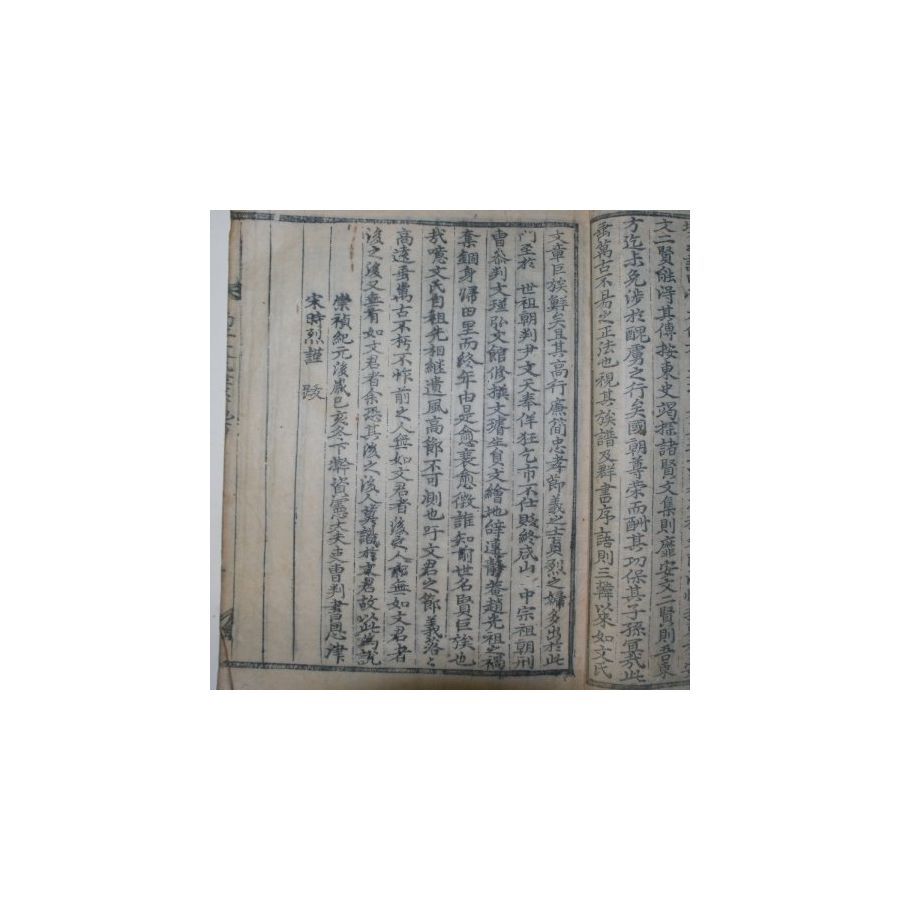 文二賢能得其傳按東史蹈採諸賢文集則靡安文二賢則吾東
方迄未免涉於醜虜之行矣國朝尊荣而酬其功保其子孫宜哉此
垂萬古不易之正法也視其族譜及群書序語則三韓以来如文氏
大章巨族鮮矣且其高行廉簡忠孝節義之士貞烈之婦多出於此
門至於 世祖朝判尹文天奉佯狂乞市不仕貶終咸山 中宗祖朝刑
曺叅判文瑾弘文館修撰文瓘生員文繪地辞連靜菴趙先祖之禍
棄錮身歸田里而終年由是愈衰愈微誰知前世名賢巨族也
哉噫文氏自祖先相継遺風高節不可測也吁文君之節義落々
高遠垂萬古不朽不怍前之人無如文君者後之人無如文君者
後之後又無有如文君者余恐其後之後人莫識於文君故以此為說
崇禎紀元後歲己亥冬下弊資憲大夫吏曹判書恩津
宋時烈謹 跋